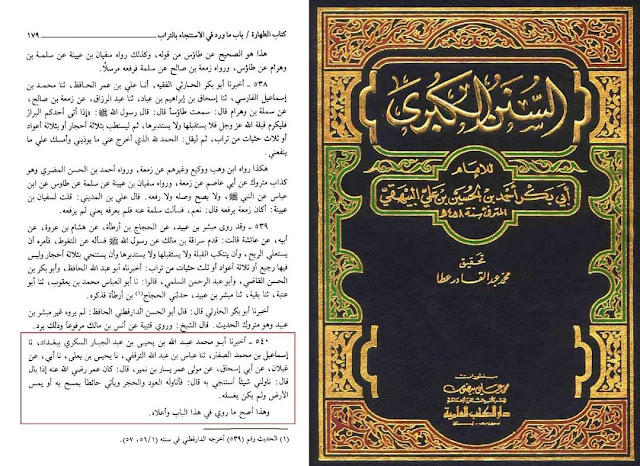 كتاب الطهارة / باب ما ورد في الاستنجاء بالتراب ١٧٩
هذا هو الصحيح عن طاؤس من قوله، وكذلك رواه سفيان بن عيينة عن سلمة بن
وهرام عن طاؤس، ورواه زمعة بن صالح عن سلمة فرفعه مرسلاً.
٥٣٨ ـ أخبرنا أبو بكر الحارثي الفقيه، أنا علي بن عمر الحافظ، ثنا محمد بن
إسماعيل الفارسي، ثنا إسحاق بن إبراهيم بن عباد، ثنا عبد الرزاق، عن زمعة بن صالح،
عن سملة بن وهرام قال: سمعت طاؤساً قال: قال رسول الله ﷺ: «إذا أتى أحدكم البراز
فليكرم قبلة الله عز وجل فلا يستقبلها ولا يستدبرها، ثم ليستطب بثلاثة أحجار أو بثلاثة أعواد
أو ثلاث حثيات من تراب، ثم ليقل: الحمد لله الذي أخرج عني ما يوذيني وأمسك علي ما
ينفعني.
هكذا رواه ابن وهب ووكيع وغيرهم عن زمعة، ورواه أحمد بن الحسن المضري وهو
كذاب متروك عن أبي عاصم عن زمعة، ورواه سفيان بن عيينة عن سلمة عن طاوس عن ابن
عباس عن النبي ﷺ، ولا يصح وصله ولا رفعه. قال علي بن المديني: قلت لسفيان بن
عيينة: أكان زمعة يرفعه قال: نعم، فسألت سلمة عنه فلم يعرفه يعني لم يرفعه.
٥٣٩ ـ وقد روى مبشر بن عبيد، عن الحجاج بن أرطأة، عن هشام بن عروة، عن
أبيه، عن عائشة قالت: قدم سراقة بن مالك على رسول الله ﷺ فسأله عن التغوط، فأمره أن
يستعلي الريح، وأن يتنكب القبلة ولا يستقبلها ولا يستدبرها وأن يستنجي بثلاثة أحجار وليس
فيها رجيع أو ثلاثة أعواد أو ثلث حثيات من تراب: أخبرناه أبو عبد الله الحافظ، وأبو بكر بن
الحسن القاضي، وأبو عبد الرحمن السلمي، قالوا: نا أبو العباس محمد بن يعقوب، ثنا أبو
عتبة، ثنا بقية، ثنا مبشر بن عبيد، حدثني الحجاج(١) بن أرطأة فذكره.
أخبرنا أبو بكر الحارثي قال: قال أبو الحسن الدارقطني الحافظ: لم يروه غير مبشر بن
عبيد وهو متروك الحديث. قال الشيخ: وروي قتيبة عن أنس بن مالك مرفوعاً وذلك يرد.
٥٤٠ ـ أخبرنا أبو محمد عبد الله بن يحيى بن عبد الجبار السكري ببغداد، نا
إسماعيل بن محمد الصفار، ثنا عباس بن عبد الله الترقفي، نا يحيى بن يعلى، نا أبي، عن
غيلان، عن أبي إسحاق، عن مولى عمر يسار بن نمير، قال: كان عمر رضي الله عنه إذا بال
قال: ناولني شيئاً أستنجي به قال: فأناوله العود والحجر ويأتي حائطاً يمسح به أو يمس
الأرض ولم يكن يغسله.
وهذا أصح ما روي في هذا الباب وأعلاه.
(١) الحديث رقم (٥٣٩) أخرجه الدارقطني في سننه (١/٥٦، ٥٧).
السنن الكبرى
للإمام
أبي بكر أحمد بن الحسين بن علي البيهقي
المتوفى سنة ٤٥٨هـ
تحقيق
محمد عبد القادر عطا
منشورات
محمد علي بيضون
دار الكتب العلمية